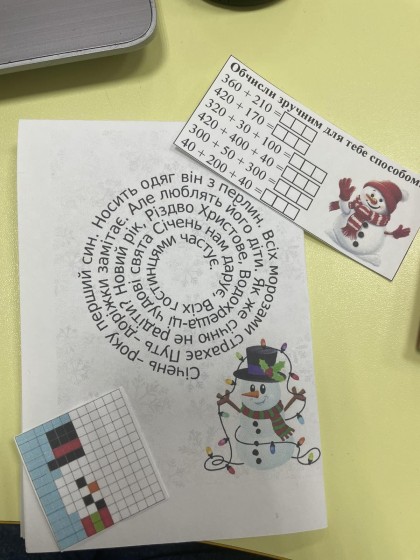 Обчисли зручним для тебе способом
360 + 210 =
420 + 170 =
320 + 30 + 100 =
420 + 400 + 40 =
300 + 50 + 300 =
40 + 200 + 40 =
Січень -року перший син. Носить одяг він з перлин. Всіх морозами страхає
Путь -доріжки замітає. Але люблять його діти. Як же січню не радіти?
Новий рік, Різдво Христове, Водохреща-ці чудові
свята Січень нам дарує, Всіх гостинцями частує.